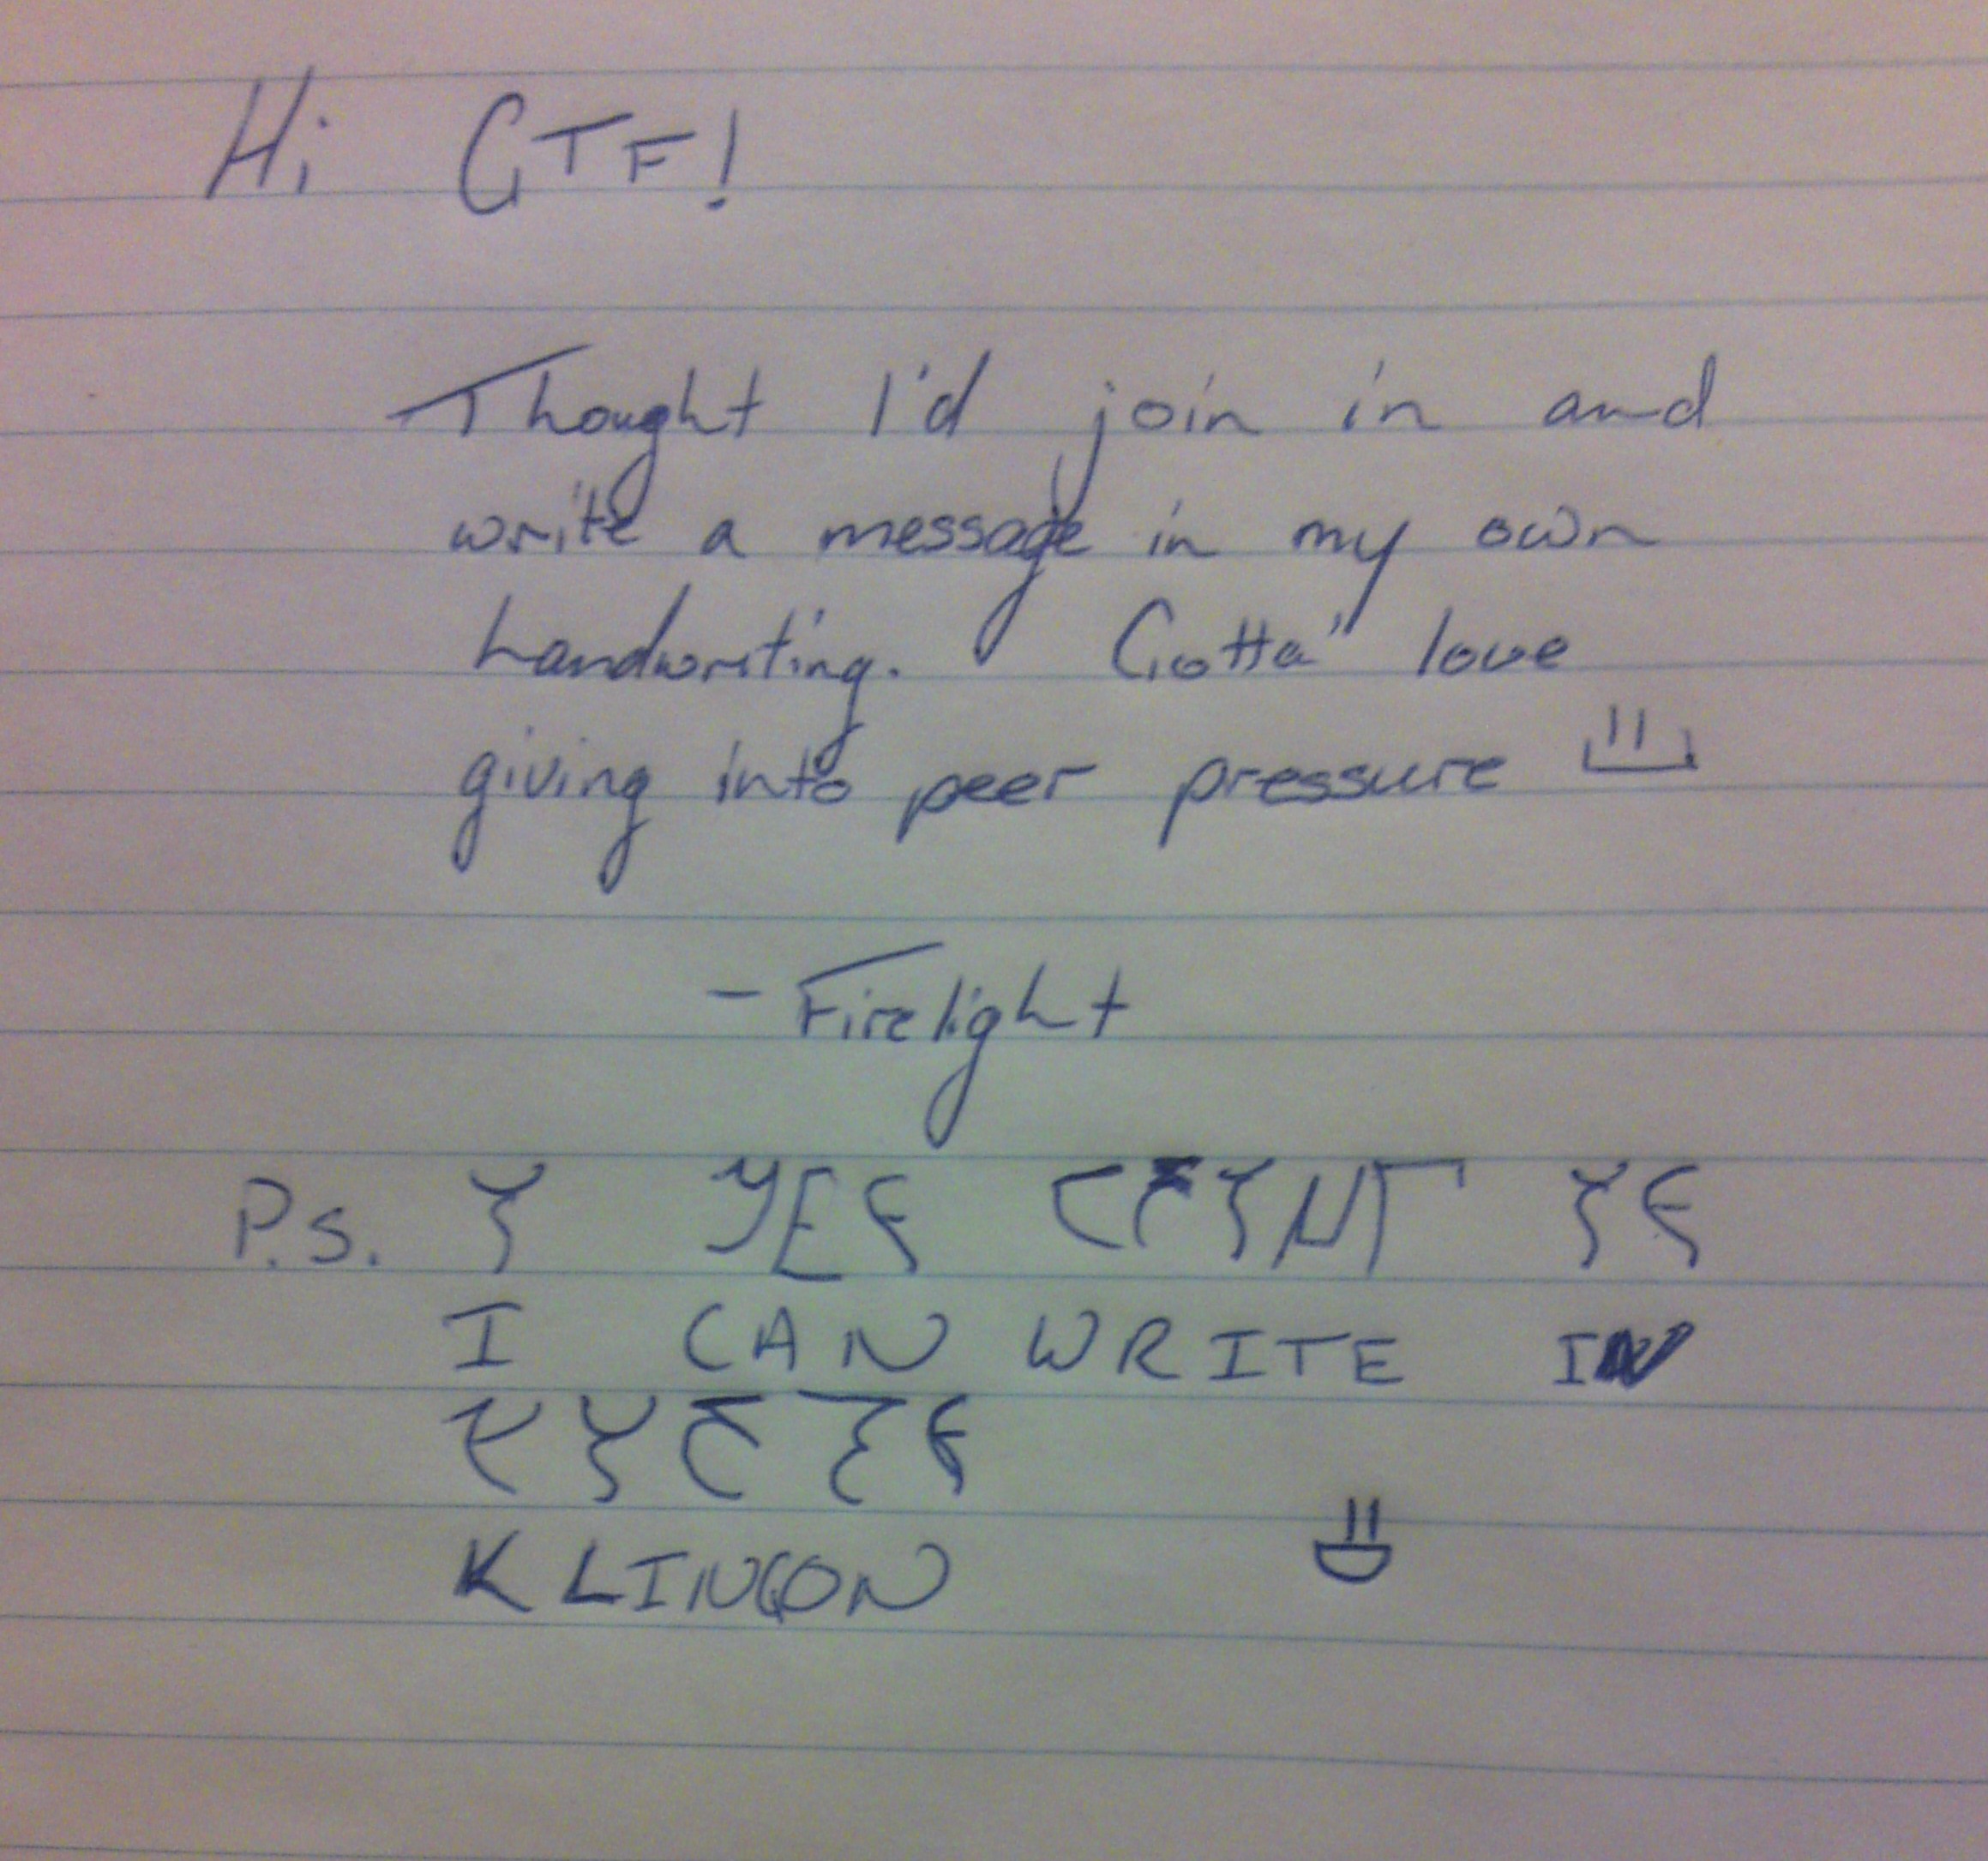 Hi GTF!
Thought I'd join in and
write a message in my own
handwriting. Gotta" love
giving into peer pressure
-Firelight
P.S.
I CAN WRITE IN
KLINGON